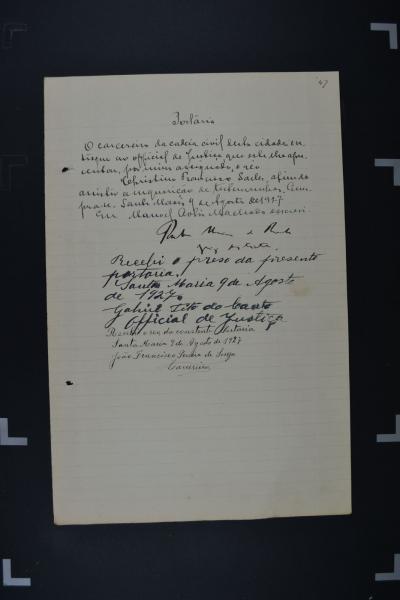 47
Portaria
O carcereiro da cadeia civil desta cidade en-
tregue ao official de Justiça que esta lhe apre-
sentar, por mim assignada, o réo
Christino Francisco Salles, afim de
assistir a inquirição de testemunhas. Cum-
pra-se. Santa Maria, 9 de Agosto de 1927
Eu Manoel Machado escrevi.
Recebi o preso da presente
portaria.
Santa Maria 9 de Agosto
de 1927.
Gabriel Tito do Canto
Official de Justiça
Recebi o reo da constante Portaria
Santa Maria 9 de Agosto de 1927
João Francisco Pereira de Souza
Carcereiro